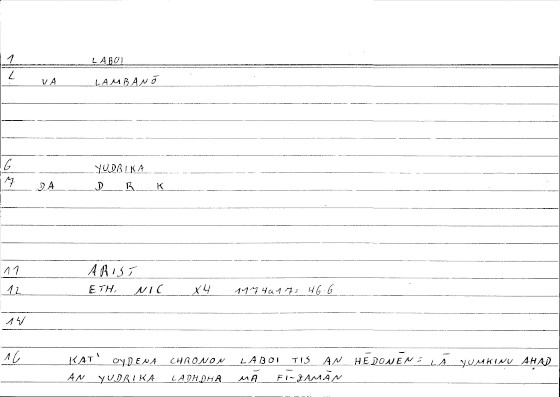 1 LABOI
L VA LAMBANŌ
6 YUDRIKA
7 DA D R K
11 ARIST
12 ETH. NIC X4 1174a17: 46.6
14
16 KAT' OYDENA CHRONON LABOI TIS AN HĒDONĒN = LĀ YUMKINU AḤAD
AN YUDRIKA LADHDHA MĀ FĪ-ZAMĀN